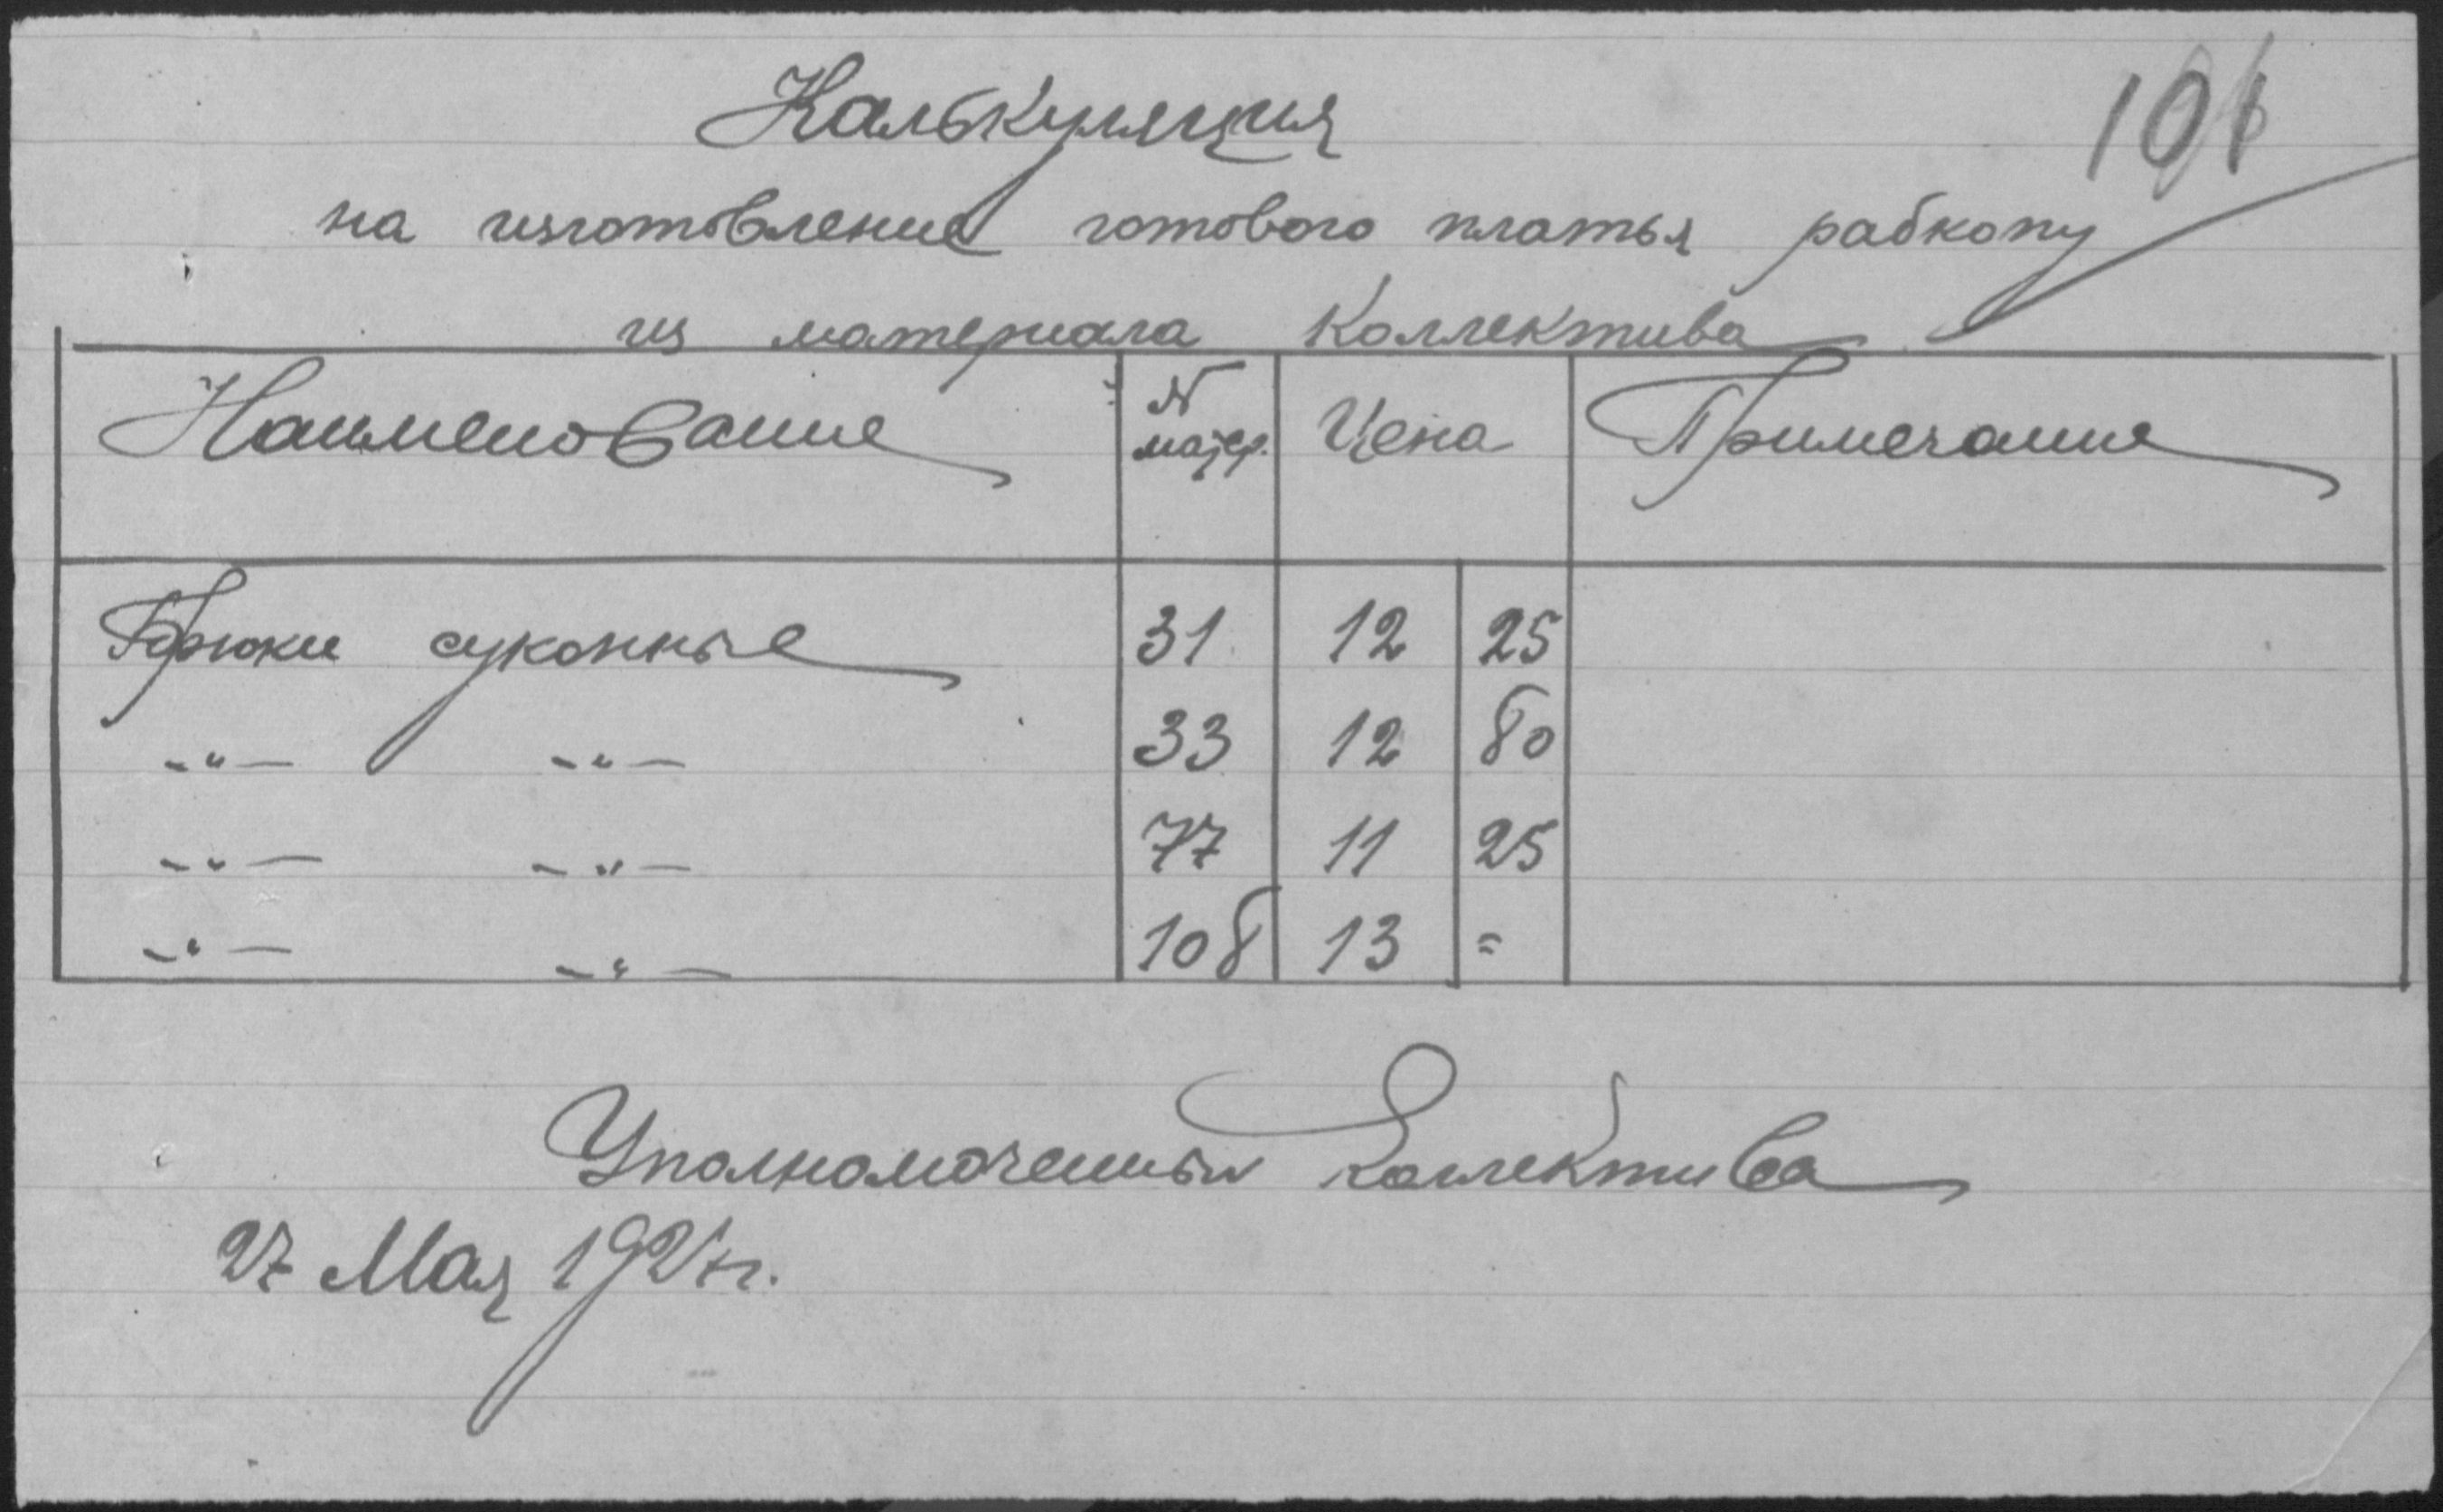 101
Калькуляция
на изготовление готового платья рабкопу
из материала Коллектива
Наименование № матер. Цена Примечание
Брюки суконные 31 12 25
-"- -"- 33 12 80
-"- -"- 77 11 25
-"- -"- 108 13 =
Уполномоченный Коллектива
27 Мая 1927 г.